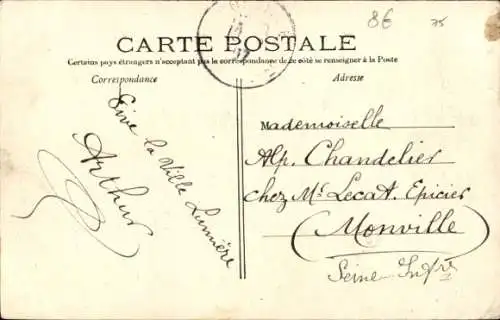 8€
75
CARTE POSTALE
Certains pays étrangers n'acceptant pas la correspondance de ce côté se renseigner à la Poste
Correspondance
Adresse
Vive la Ville Lumière
Arthur
Mademoiselle
Alp. Chandelier
chez Mr Lecat. Epicier
Monville
Seine Infre